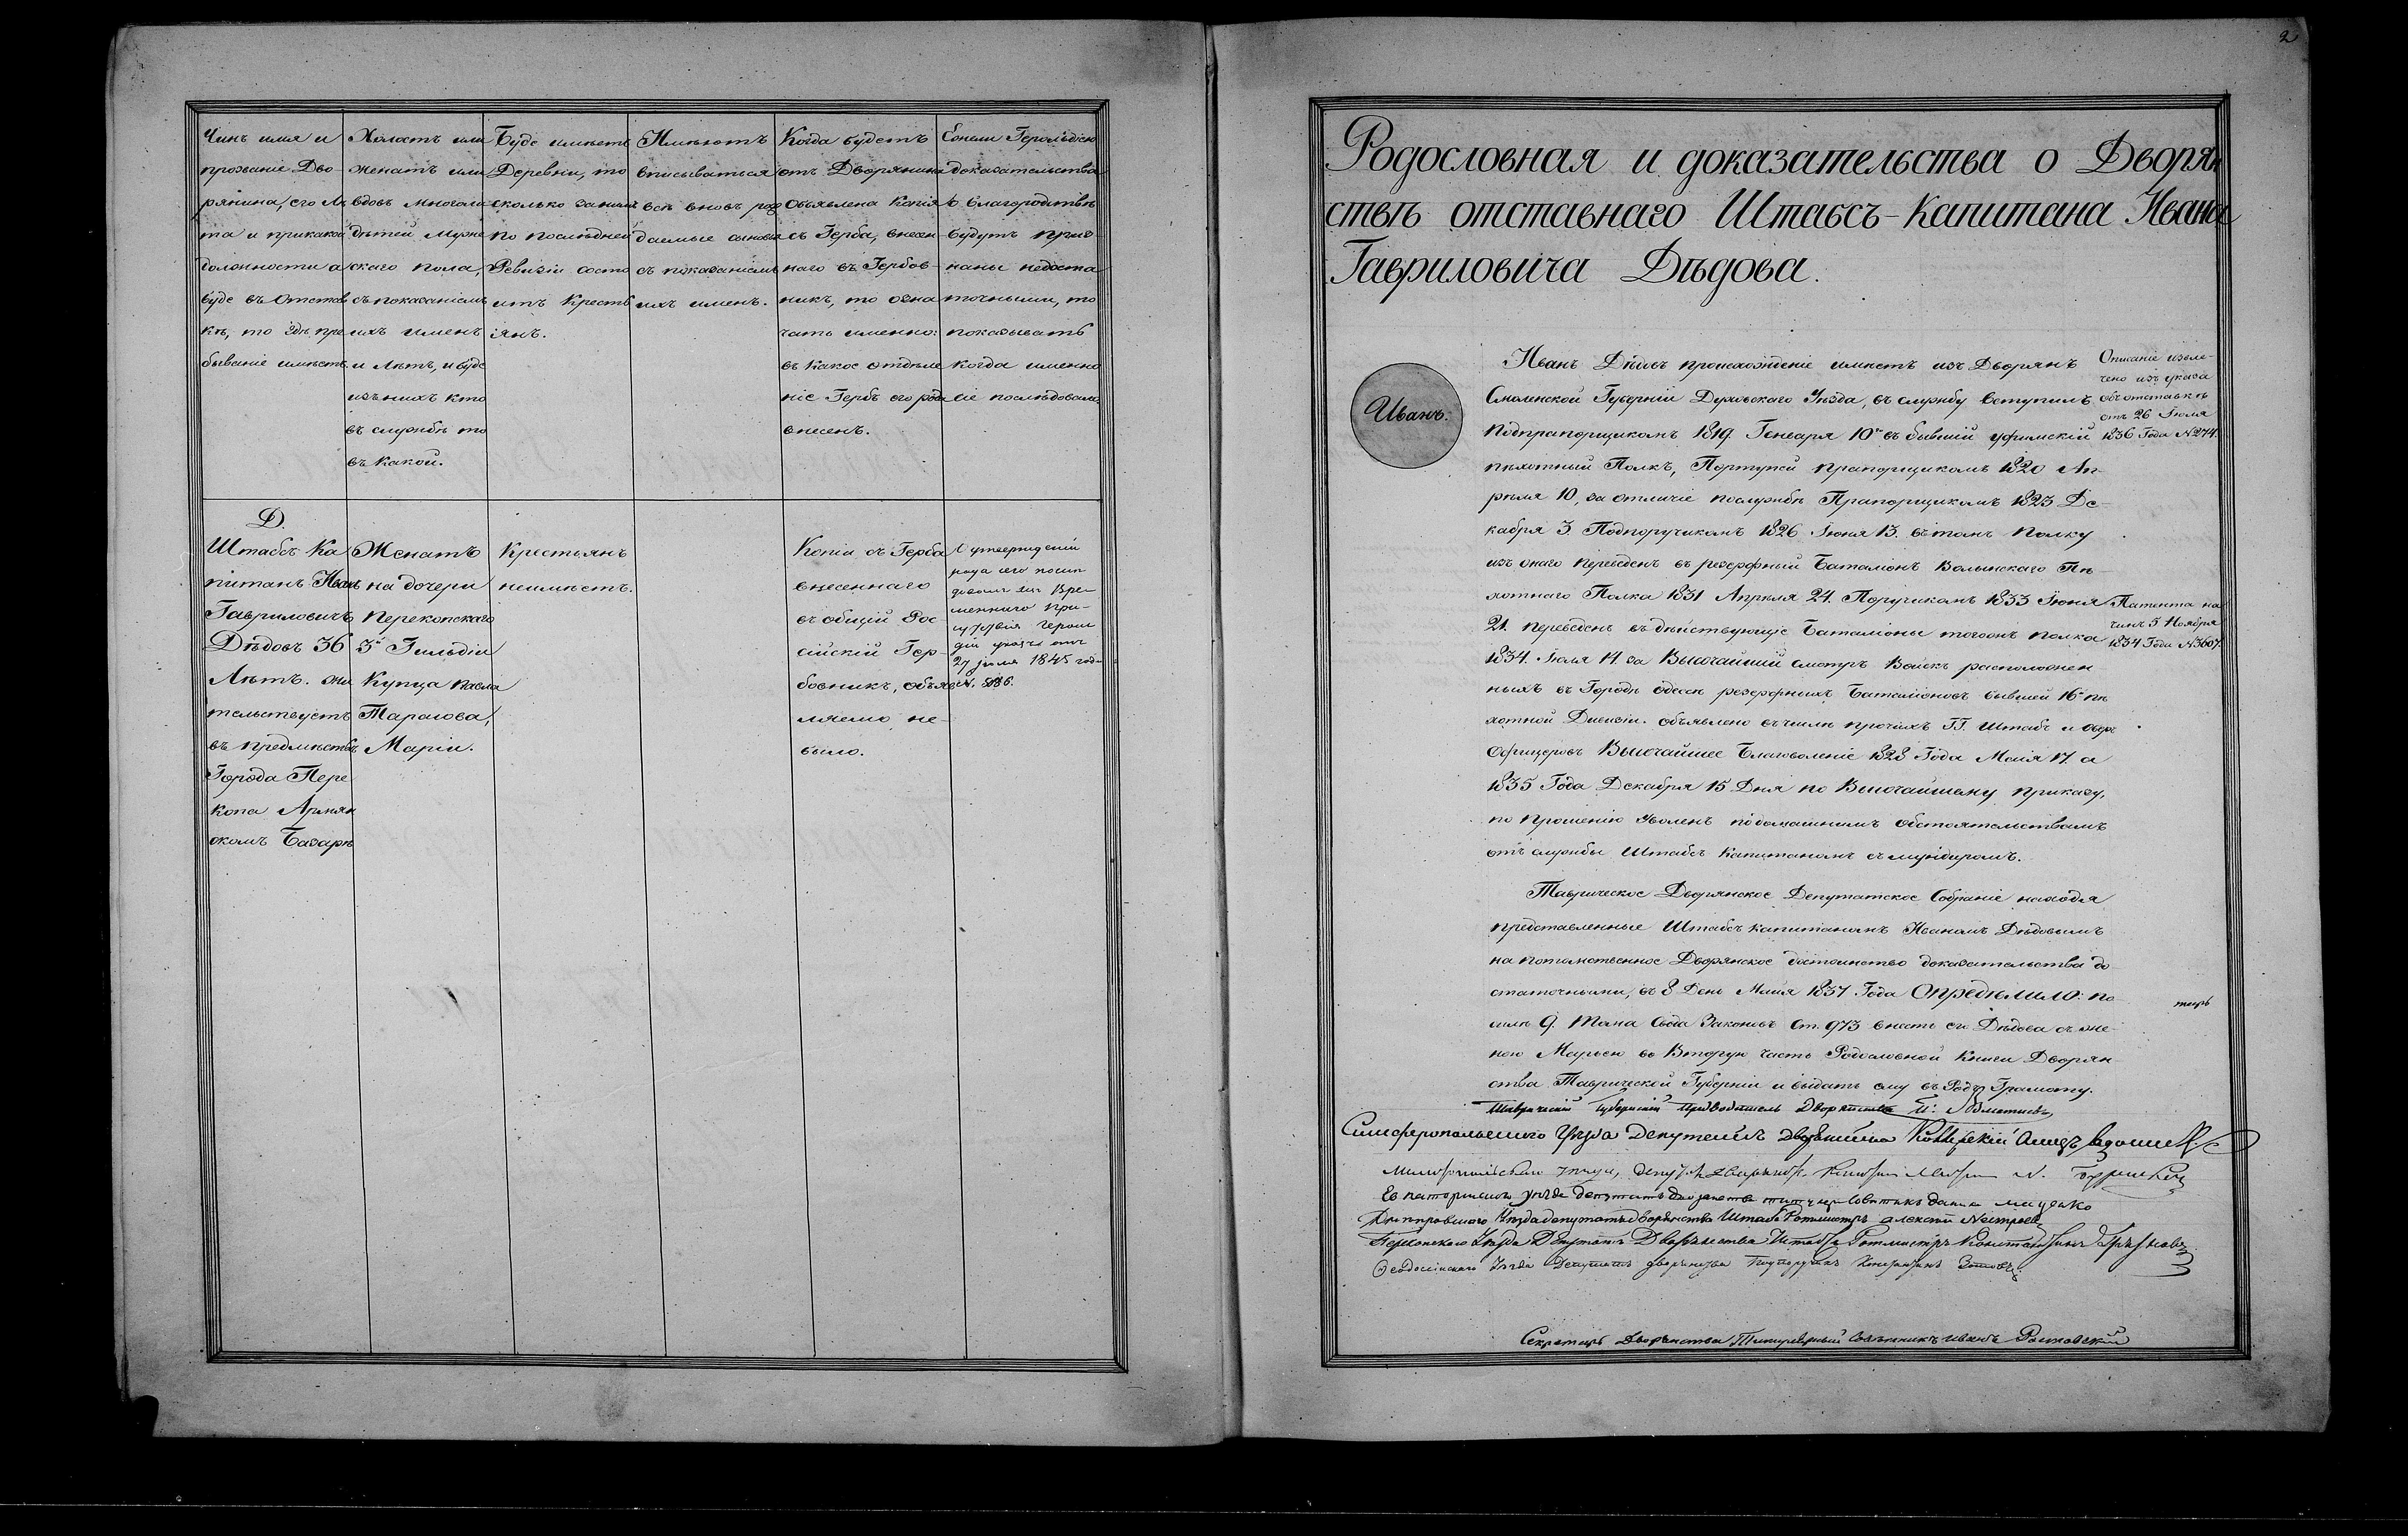 Чинъ имя и
прозваніе Дво-
рянина, его лѣ
та и прикакой
должности а
буде въ отстав
кѣ, то гдѣ пре
бываніе имѣетъ
Холостъ или
женатъ или
вдовъ многоли
дѣтей Муже
скаго пола,
съ показаніемъ
ихъ именъ
и Лѣтъ, и буде
изъ нихъ кто
въ службѣ то
въ какой.
Буде имѣетъ
Деревни, то
сколько за нимъ
по послѣдней
Ревизіи состо
итъ Кресть
янъ.
Имѣютъ
вписываться
всѣ вновь рож
даемые сыновья
съ показаніемъ
ихъ именъ.
Когда будетъ
отъ Дворянина
Объявлена Копія
съ Герба, внесен
наго въ Гербов-
никъ, то озна
чать именно:
въ какое отдѣле
ніе Гербъ его рода
внесенъ.
Есъли Герольдіею
доказательства
о благородствѣ
будутъ приз-
наны недоста
точными, то
показывать
когда именно
сіе послѣдовало
Д.
Штабсъ Ка
питанъ Иванъ
Гавриловичъ
Дѣдовъ 36
Лѣтъ. жи
тельствуетъ
въ предмѣстьѣ
Города Пере
копа Армян
скомъ Базарѣ
Женатъ
на дочери
Перекопскаго
3й Гильдіи
Купца Павла
Тарасова,
Маріи.
Крестьянъ
неимѣетъ.
Копіи съ Герба
внесеннаго
въ общій Рос-
сійскій Гер-
бовникъ, объяв
ляемо не-
было.
О утвержденіи
рода сего послѣ
довалъ Вре-
меннаго При-
сутствія Героль
діи указъ отъ
27 іюля 1845 года
2
Родословная и доказательства о Дворян
ствѣ отставнаго Штабсъ-Капитана Ивана
Гавриловича Дѣдова.
Иванъ.
Иванъ Дѣдовъ происхожденіе имѣетъ изъ Дворянъ
Смоленской Губерніи Духовскаго Уѣзда, въ службу вступилъ
Подпрапорщикомъ 1819. Генваря 10го въ бывшій уфимскій
пѣхотный Полкъ, Портупей прапорщикомъ 1820 Ап-
рѣля 10, за отличіе послужбѣ Прапорщикомъ 1823 Де-
кабря 3. Подпоручикомъ 1826 Іюня 13. въ томъ Полку
изъ онаго переведенъ въ резервный Баталіонъ Волынскаго Пѣ-
хотнаго Полка 1831 Апрѣля 24. Поручикомъ 1833 Іюня
21. переведенъ въ дѣйствующіе Баталіоны тогожъ полка
1834. Іюля 14. за Высочайшій смотръ Войскъ расположен
ныхъ въ Городѣ Одессѣ резервныхъ Баталіоновъ бывшей 16й пѣ
хотной Дивизіи. объявлено въ числѣ прочихъ ГГ. Штабъ и Оберъ
Офицеровъ Высочайшее Благоволеніе 1828 Года Маія 17. а
1835 Года Декабря 15 Дня по Высочайшему приказу,
по прошенію уволенъ по домашнимъ обстоятельствамъ
отъ службы Штабсъ Капитаномъ съ мундиромъ.
Описаніе извле-
чено изъ указа
объ отставкѣ
отъ 26 Іюля
1836 Года №274.
Патента на
чинъ 5 Ноября
1834 Года №3607.
Таврическое Дворянское Депутатское Собраніе находя
представленные Штабсъ капитаномъ Иваномъ Дѣдовымъ
на потомственное Дворянское достоинство доказательства до-
статочными, въ 8 День Маия 1837 Года Опредѣлило: по
силѣ 9. Тома Свода Законовъ Ст. 973 внесть его Дѣдова съ же-
ною Марьею во Вторую часть Родословной Книги Дворян
ства Таврической Губерніи и выдать ему въ Родъ Грамоту.
Таврическій Губернскій Предводитель Дворянства
Симферопольскаго Уѣзда Депутатъ дворянства
уѣзда, депут.
Евпаторійскаго уѣзда депутатъ дворянства титуляр. Совѣтникъ
Днѣпровскаго Уѣзда депутатъ дворянства Штабъ Ротмистръ Алексѣй
Перекопскаго Уѣзда Депутатъ Дворянства Штабсъ Ротмистръ Константинъ
Ѳеодосійскаго Уѣзда Депутатъ дворянства Подпоручикъ Константинъ
Секретарь Дворянства Титулярный Совѣтникъ Иванъ Ростовскій